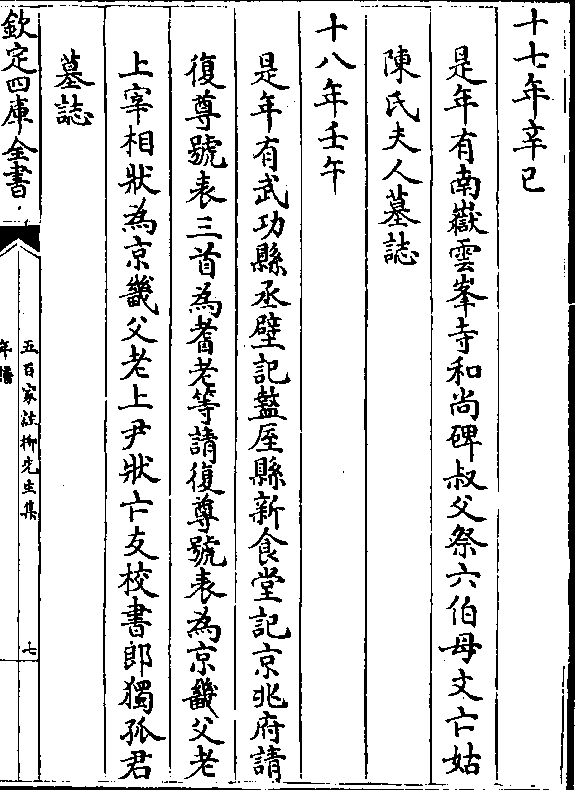 十七年辛巳
是年有南嶽雲峯寺和尚碑叔父祭六伯母文亡姑
陳氏夫人墓誌
十八年壬午
是年有武功縣丞壁記盩厔縣新食堂記京兆府請
復尊號表三首為耆老等請復尊號表為京畿父老
上宰相狀為京畿父老上尹狀亡友校書郎獨孤君
墓誌
欽定四庫全書
五百家注柳先生集
年譜
七